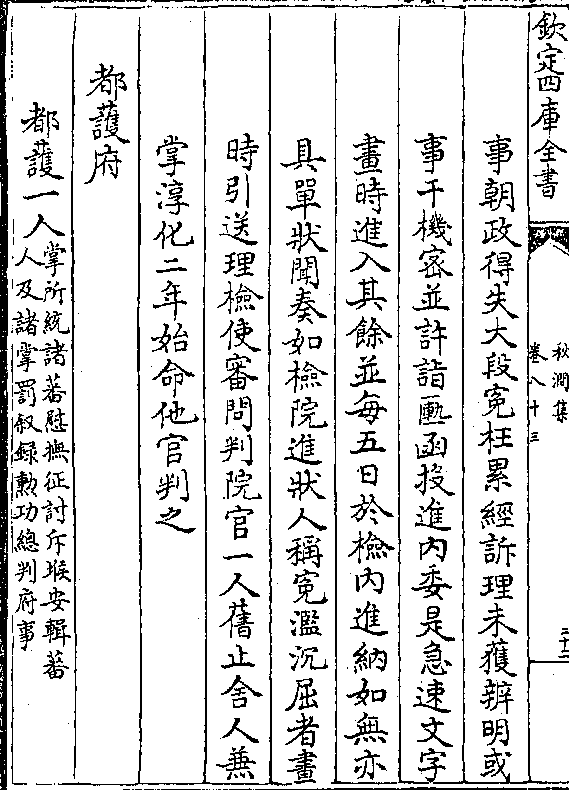 欽定四庫全書
秋澗集
卷八十三
事朝政得失大段冤枉累經訴理未獲辨明或
事干機密並許詣匭函投進內委是急速文字
畫時進入其餘並每五日於檢內進納如無亦
具單狀聞奏如檢院進狀人稱冤濫沉屈者畫
時引送理檢使審問判院官一人舊止舍人兼
掌淳化二年始命他官判之
都護府
都護一人掌所統諸蕃慰撫征討斥堠安輯蕃
人及諸掌罰叙録勲功總判府事